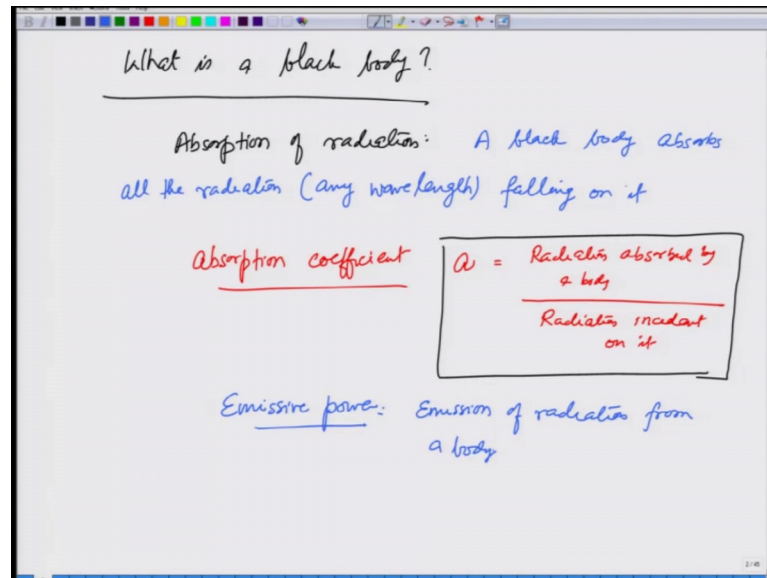 What is a black body?
Absorption of radiation: A black body absorbs
all the radiation (any wavelength) falling on it
Absorption coefficient a = Radiation absorbed by
a body
Radiation incident
on it
Emissive power: Emission of radiation from
a body
2/45